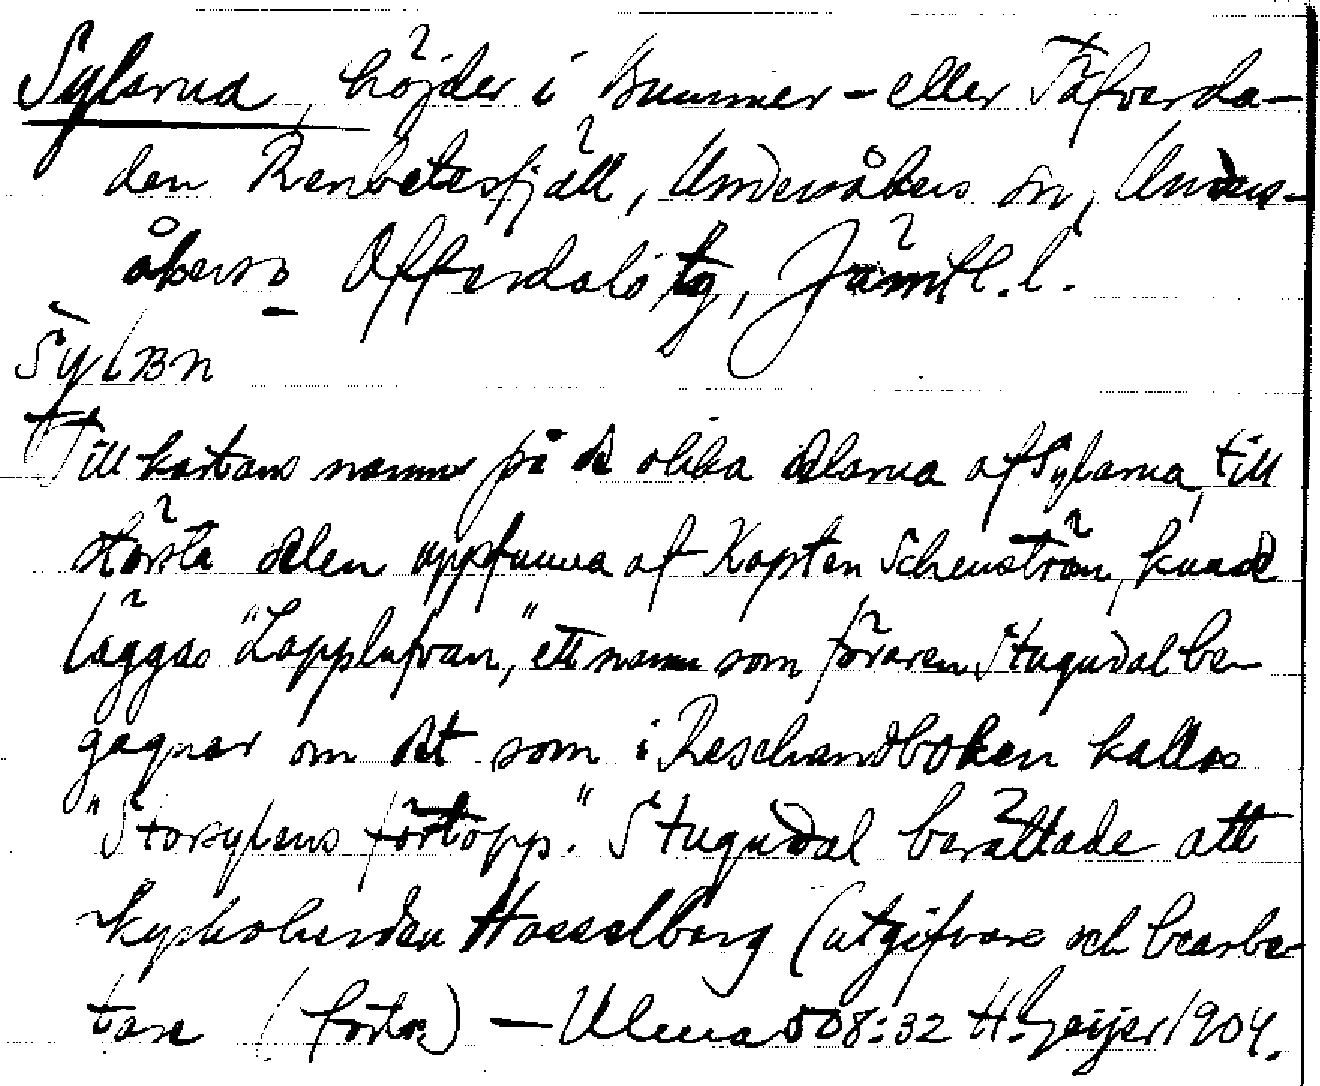 Sylarna, höjder i Bummer- eller Täfverda-
den Renbetesfjäll, Undersåkers sn, Unders-
åkers o Offerdals tg, Jämtl. l.
Syl
Till kartans namn på de olika delarna af Sylarna, till
största delen uppfunna af Kapten Schenström, kunde
läggas "Lapplufvan," ett namn som föraren Stugudal be-
gagnar om det som i Resehandboken kallas
"Storsylens förtopp." Stugudal berättade att
kyrkoherden Hasselberg (utgifvare och bearbe-
tare (forts) — Ulma 508:32 H. Geijer 1904.